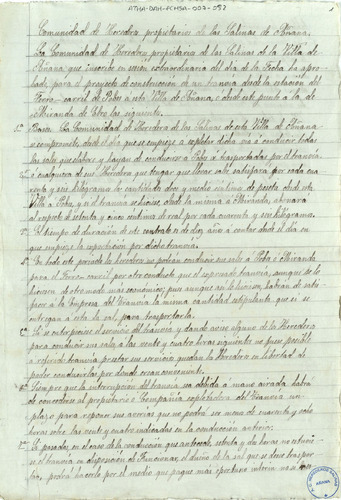 ATHA-DAH-FCHSA-007-052
Comunidad de Herederos propietarios de las Salinas de Añana.
La Comunidad de Herederos propietarios de las Salinas de la Villa de
Añana que suscribe en sesión extraordinaria del día de la fecha ha apro-
bado para el proyecto de construcción de un tranvía desde la estación del
Ferro-carril de Pobes a esta Villa de Añana, o desde este punto a la de
Miranda de Ebro las siguientes.
Bases. La Comunidad de Herederos de las Salinas de esta Villa de Añana
se compromete, desde el día que se empiece a explotar dicha vía a conducir todas
las sales que elabore y hayan de conducirse a Pobes a transportarlas por el tranvía
cualquiera de sus Herederos que tengan que llevar sales satisfará por cada cua
renta y seis kilogramos la cantidad de doce y media céntimos de peseta desde esta
Villa a Pobes, y si el tranvía se hiciese desde la misma a Miranda, abonará
al respecto de setenta y cinco céntimos de real por cada cuarenta y seis kilogramos.
El tiempo de duración de este contrato es de diez años a contar desde el día
en que empiece la explotación por dicho tranvía.
En todo este periodo los herederos no podrán conducir sus sales a Pobes o Miranda
para el Ferro-carril, por otro conducto que el expresado tranvía, aunque se lo
hiciera de otro modo más económico; pues aunque así lo hicieren, habrán de satis-
facer a la Empresa del Tranvía la misma cantidad estipulada que si se
entregara a esta la sal, para transportarla.
Si se interrumpiese el servicio del tranvía y dando aviso alguno de los Herederos
para conducir sus sales a las veinte y cuatro horas siguientes no fuese posible
al referido tranvía prestar sus servicios quedan los Herederos en libertad de
poder conducirlas por donde crean conveniente.
Siempre que la interrupción del tranvía sea debida a mano airada habrá
de concederse al propietario o Compañía explotadora del Tranvía un
plazo para reponer sus averías que no podrá ser menos de cuarenta y ocho
horas sobre las veinte y cuatro indicadas en la condición anterior.
Si pasadas, en el caso de la condición que antecede, setenta y dos horas no estuvie-
se el tranvía en disposición de funcionar, el dueño de la sal que se deve trasportar
podrá hacerlo por el medio que juzgue más oportuno interin no se